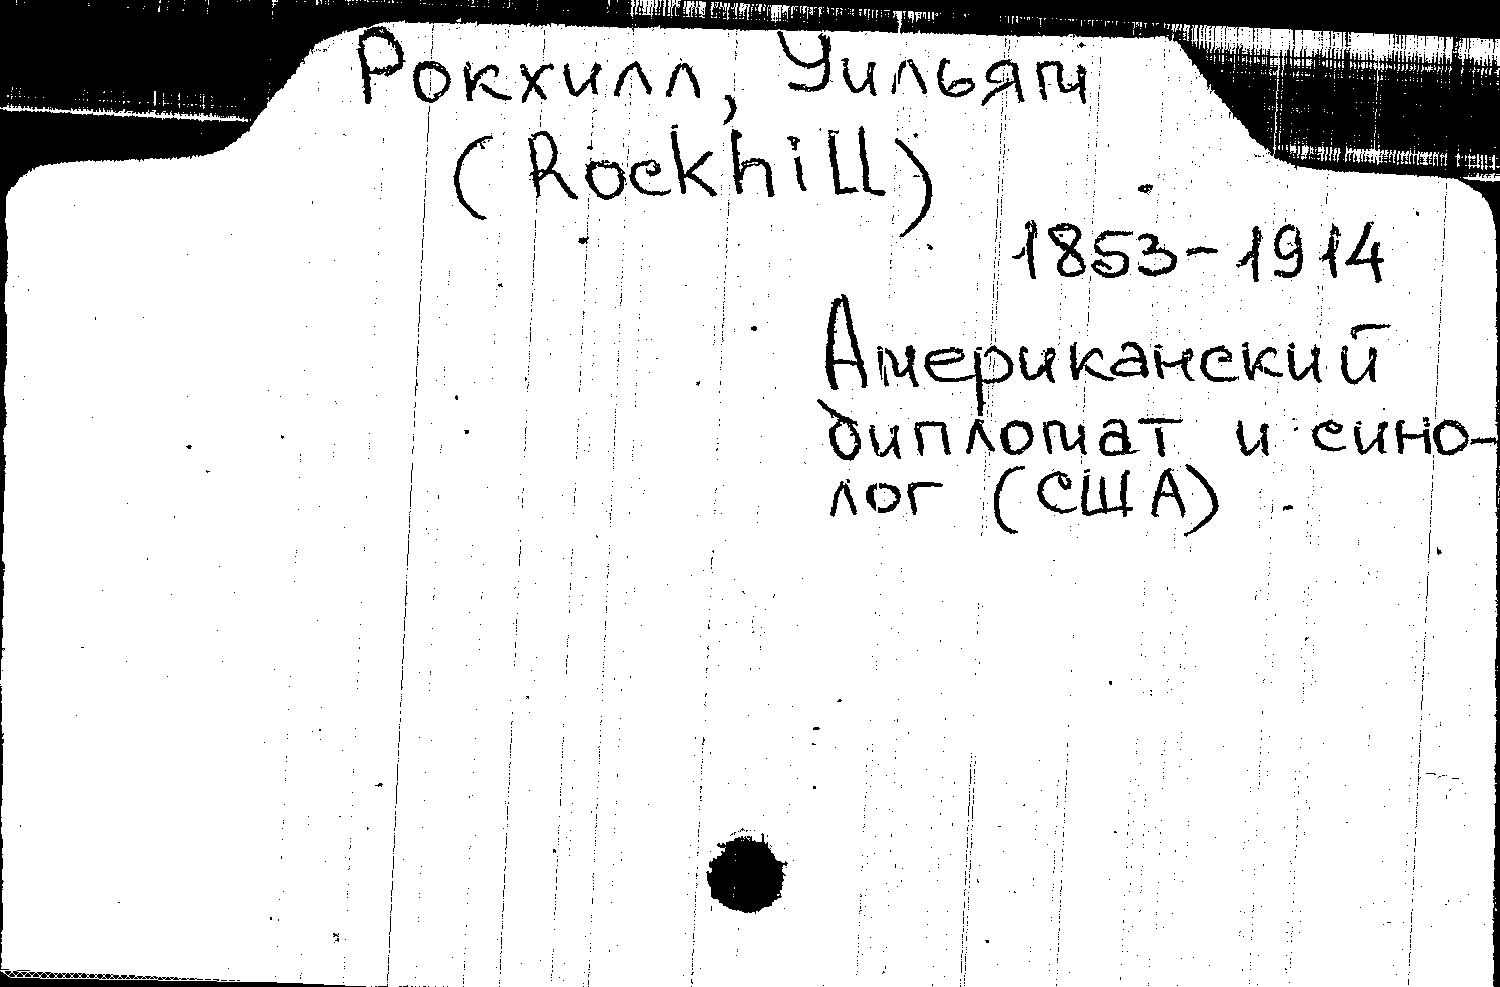 Рокхилл, Уильям
(Rockhill)
1853-1914
Американский
дипломат и сино-
лог (США)